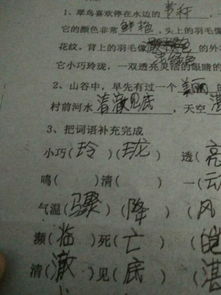 1、翠鸟喜欢停在水边的苇秆
它的颜色非常鲜艳,头上的羽毛像
花纹,背上的羽毛像浅绿色的外
它小巧玲珑,一双透亮灵活的眼睛
2、山谷中,早先有过一个美丽的
村前河水清澈见底,天空
3、把词语补充完成
小巧(玲)(珑) 透(亮
鸣( )清( ) 一(
气温(骤)(降) (风
濒(临)死(亡) (皓
清(澈)见(底) (湛